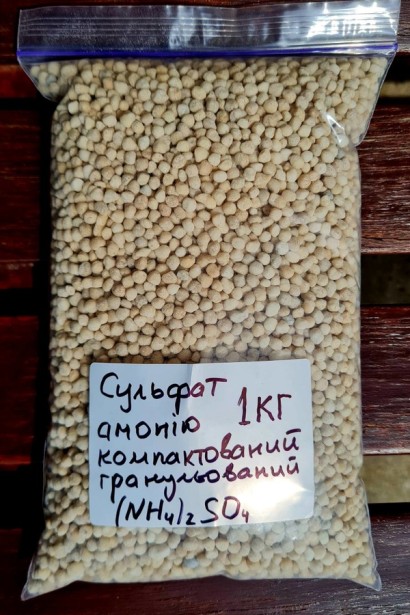 Сульфат 1КГ
амонію
компактований
гранульований
(NH4)2SO4